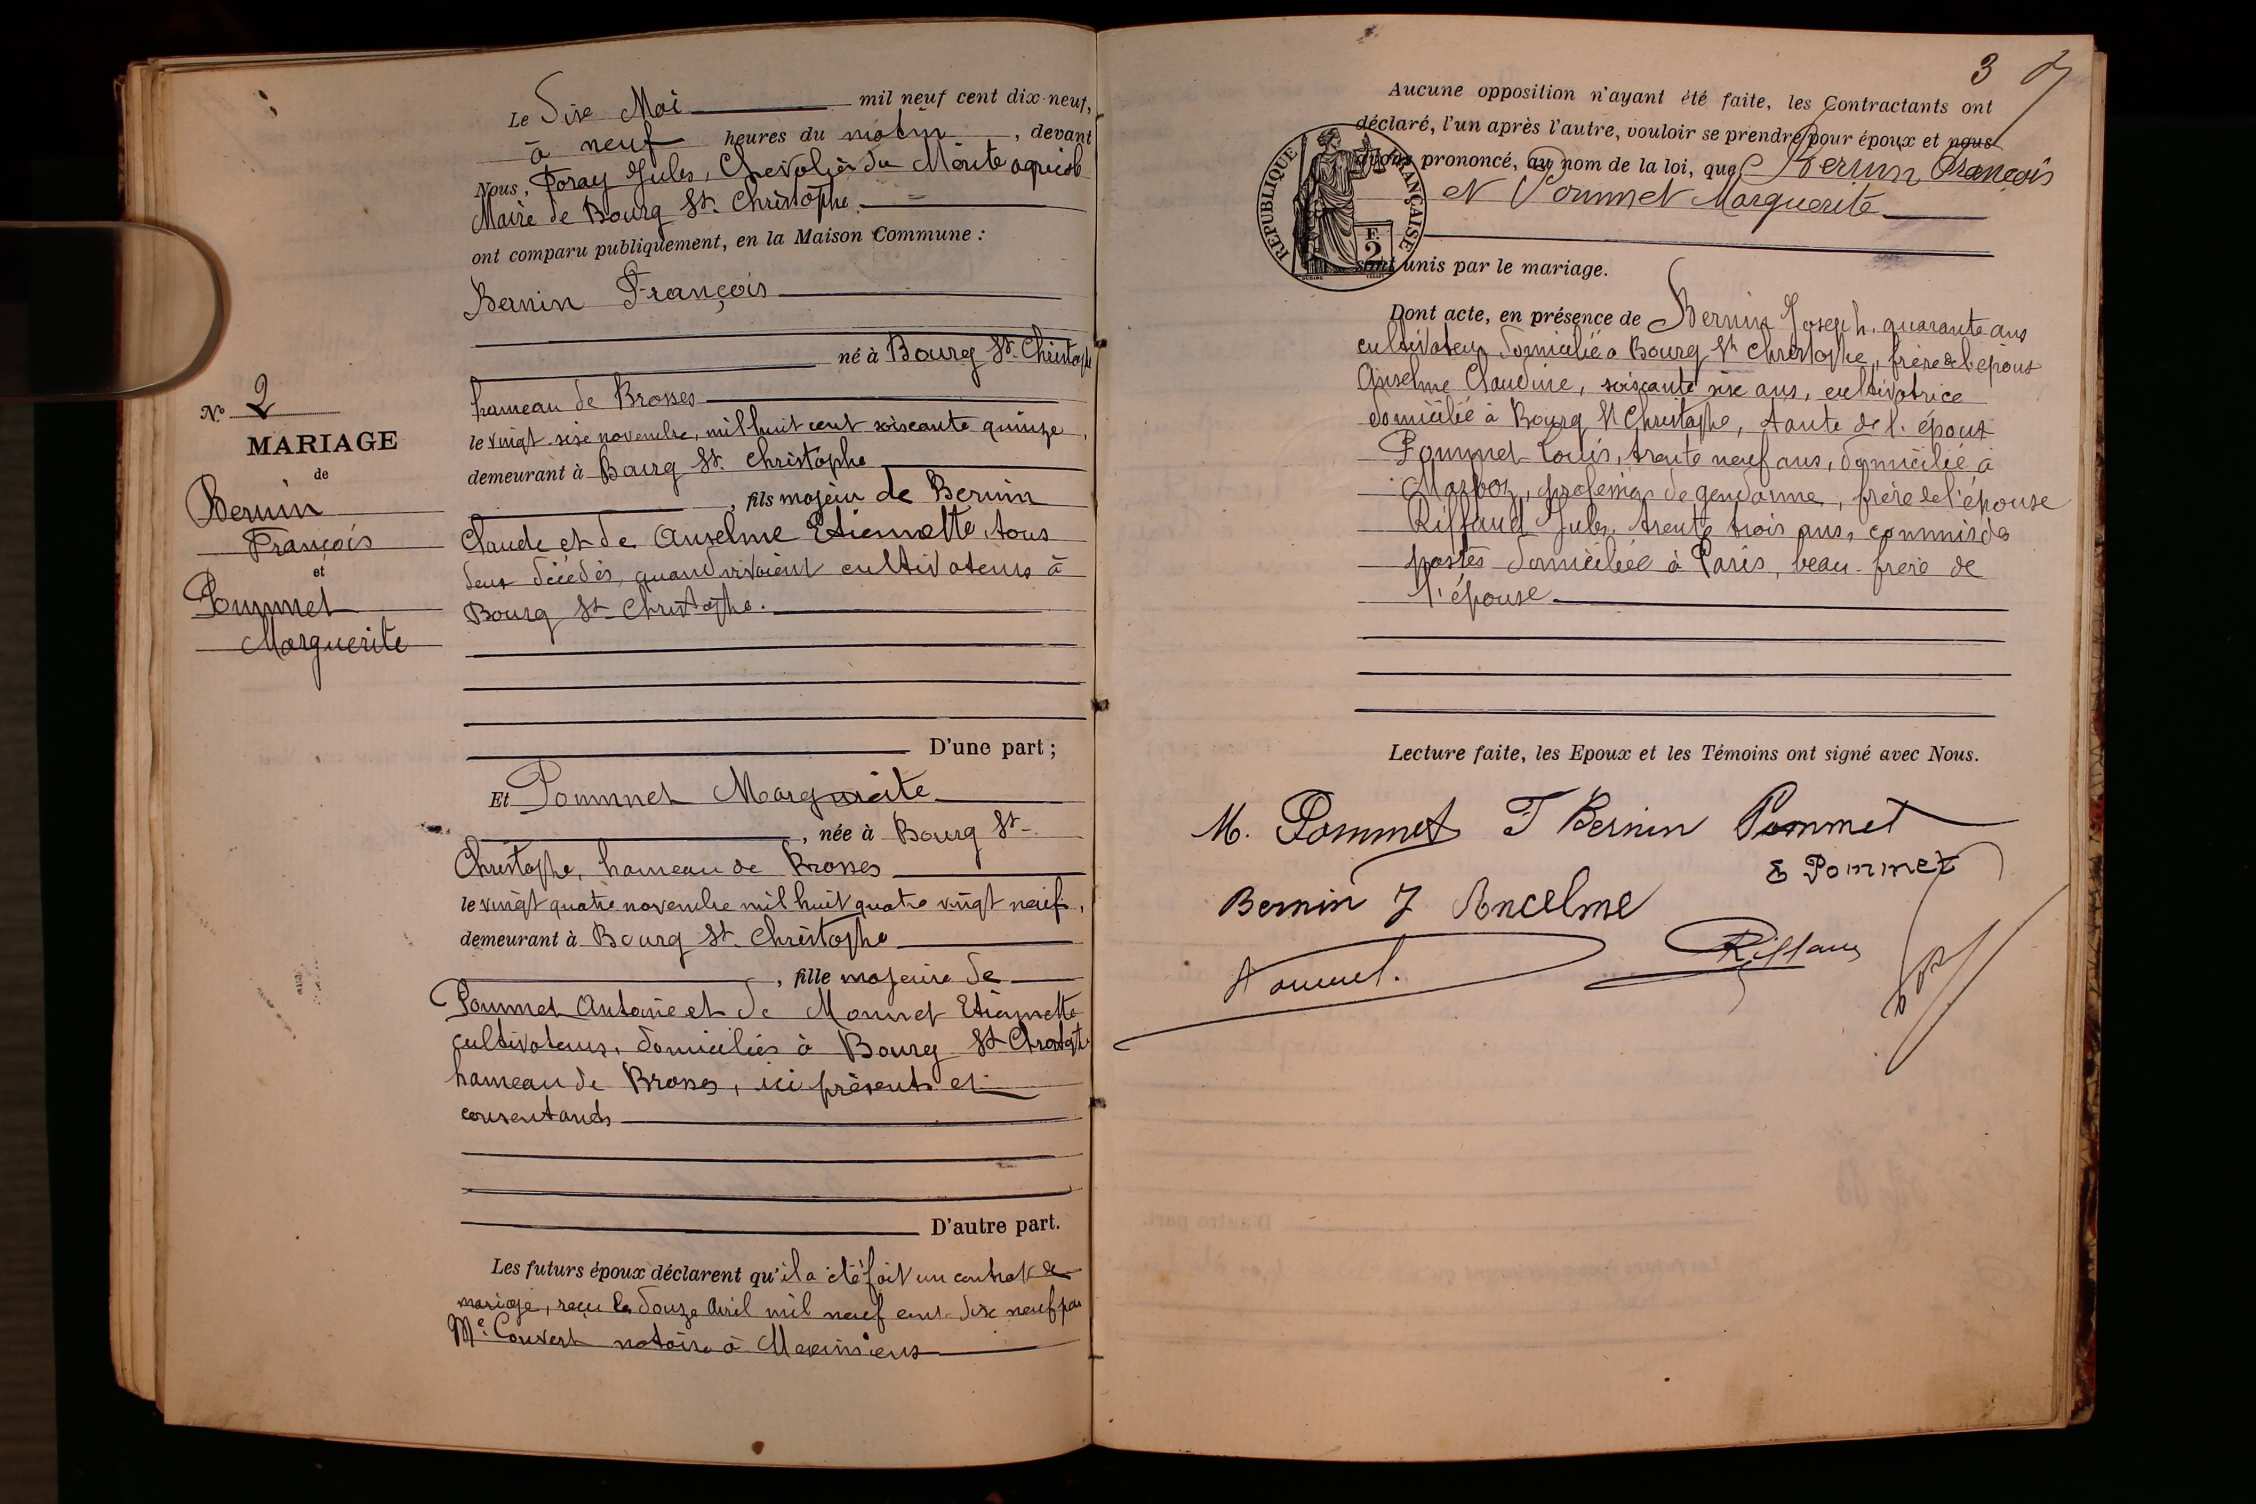 Le Six Mai mil neuf cent dix-neuf,
à neuf heures du matin, devant
Nous, Foray Jules, Chevalier du Mérite agricole
Maire de Bourg St. Christophe.
ont comparu publiquement, en la Maison Commune :
Bernin François
né à Bourg St. Christophe
hameau de Brosses
le vingt-six novembre, mil huit cent soixante quinze,
demeurant à Bourg St. Christophe
, fils majeur de Bernin
Claude et de Anselme Etiennette, tous
deux décédés, quand vivaient cultivateurs à
Bourg St Christophe.
D'une part ;
No 2
MARIAGE
de
Bernin
François
et
Pommet
Marguerite
Et Pommet Marguerite
, née à Bourg St-
Christophe, hameau de Brosses
le vingt quatre novembre mil huit quatre vingt neuf,
demeurant à Bourg St. Christophe
, fille majeure de
Pommet Antoine et de Monnet Etiennette
cultivateurs, domiciliés à Bourg St Christophe
hameau de Brosses, ici présents et
consentants
D'autre part.
Les futurs époux déclarent qu'il a été fait un contrat de
mariage, reçu le douze Avril mil neuf cent dix neuf par
Me. Couvert notaire à Meximieux
3
Aucune opposition n'ayant été faite, les Contractants ont
déclaré, l'un après l'autre, vouloir se prendre pour époux et nous
avons prononcé, au nom de la loi, que Bernin François
et Pommet Marguerite
sont unis par le mariage.
RÉPUBLIQUE FRANÇAISE
F.
2
Dont acte, en présence de Bernin Joseph, quarante ans
cultivateur domicilié à Bourg St Christophe, frère de l'époux
Anselme Claudine, soixante six ans, cultivatrice
domiciliée à Bourg St Christophe, tante de l'époux
Pommet Louis, trente neuf ans, domicilié à
Marboz, de gendarme, frère de l'épouse
Riffaud Jules, trente trois ans, commis des
postes domicilié à Paris, beau-frère de
l'épouse
Lecture faite, les Epoux et les Témoins ont signé avec Nous.
M. Pommet F Bernin Pommet
E Pommet
Bernin J Ancelme
Pommet. Riffaud